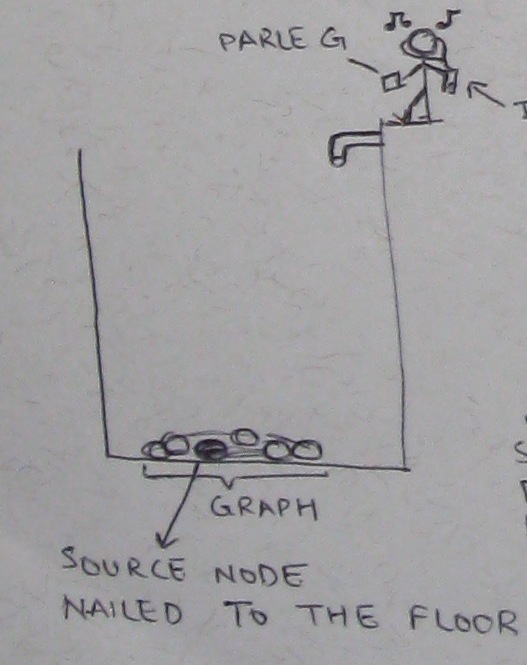 PARLE G
GRAPH
SOURCE NODE
NAILED TO THE FLOOR